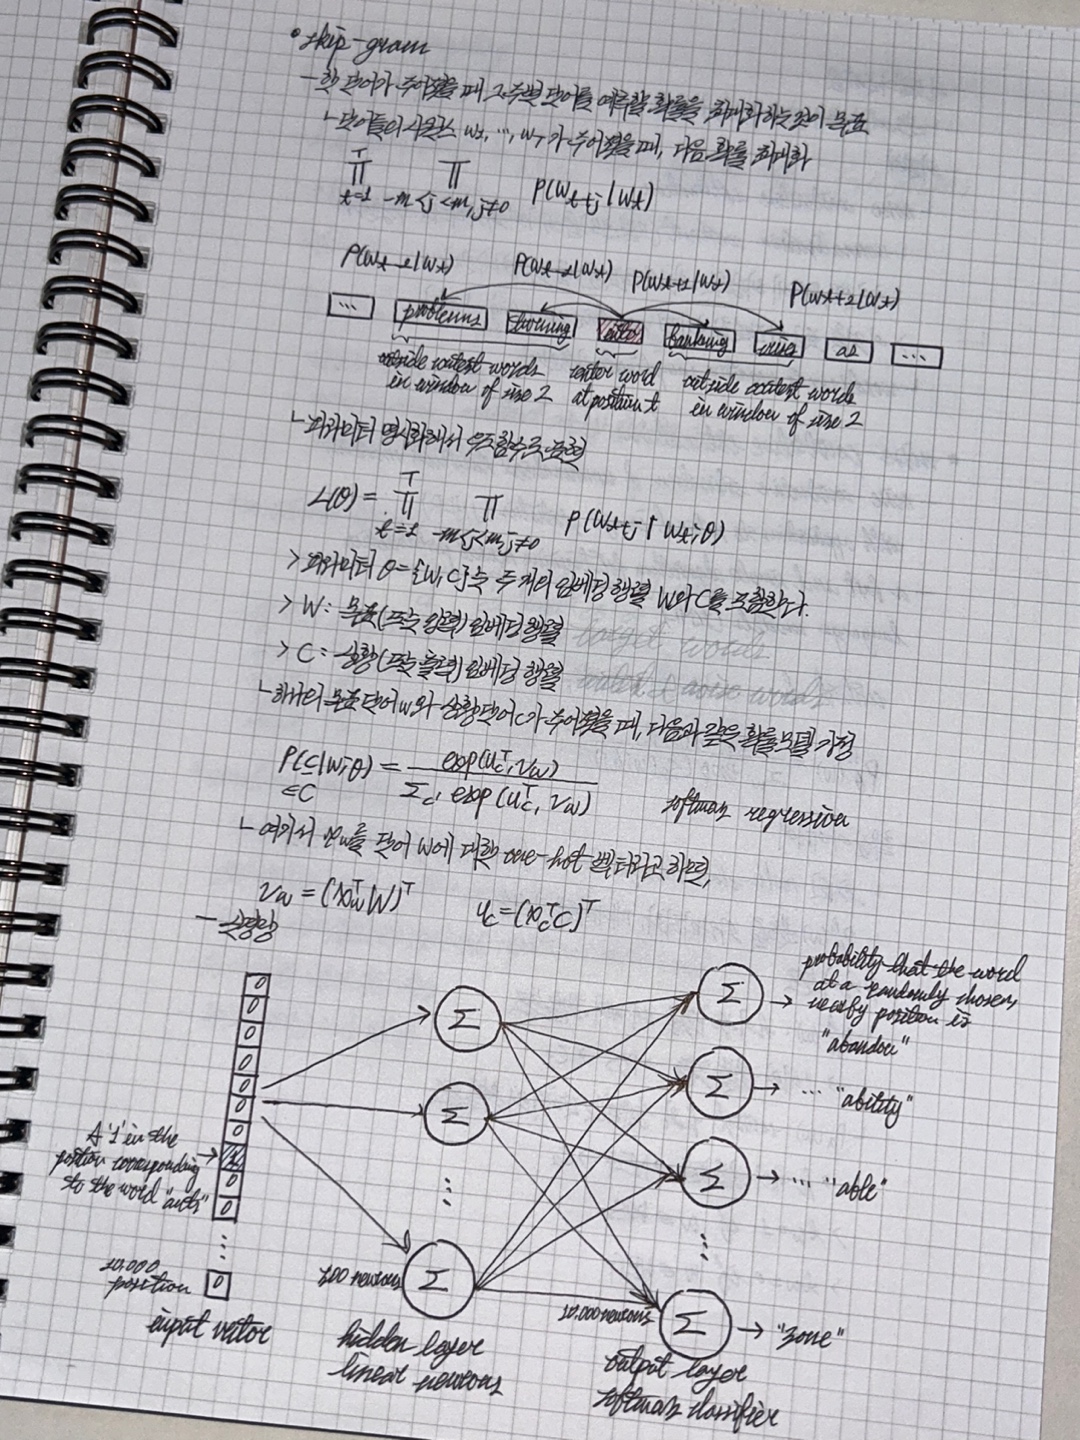 • skip-gram
- 한 단어가 주어졌을 때 그 주변 단어를 예측할 확률을 최대화하는 것이 목표
ㄴ 단어들의 시퀀스 w1, ..., wT가 주어졌을 때, 다음 확률 최대화
T
Π Π P(wt+j | wt)
t=1 -m<j<m, j≠0
P(wt-2|wt) P(wt-1|wt) P(wt+1|wt) P(wt+2|wt)
... problems turning into banking crises as ...
outside context words center word outside context words
in window of size 2 at position t in window of size 2
ㄴ 파라미터 명시화해서 우도함수로 표현
T
L(θ) = Π Π P(wt+j | wt; θ)
t=1 -m<j<m, j≠0
> 파라미터 θ={W, C}는 두 개의 임베딩 행렬 W와 C를 포함한다.
> W: 목표(또는 입력) 임베딩 행렬 target words
> C: 상황(또는 출력) 임베딩 행렬 context & noise words
ㄴ 하나의 목표 단어 w와 상황 단어 c가 주어졌을 때, 다음과 같은 확률 모델 가정
P(c|w; θ) = exp(uc^T, vw) / Σc' exp(uc^T, vw) softmax regression
∈C
ㄴ 여기서 xw를 단어 w에 대한 one-hot 벡터라고 하면,
vw = (xw^T W)^T uc = (xc^T C)^T
-
0
0
0
0
0
0
0
1
0
0
⋮
0
A '1' in the
position corresponding
to the word "ants"
10.000
position
input vector
Σ
Σ
⋮
Σ
300 neurons
hidden layer
linear neurons
Σ
Σ
Σ
⋮
Σ
10.000 neurons
output layer
softmax classifier
probability that the word
at a randomly chosen,
nearby position is
"abandon"
... "ability"
... "able"
"zone"